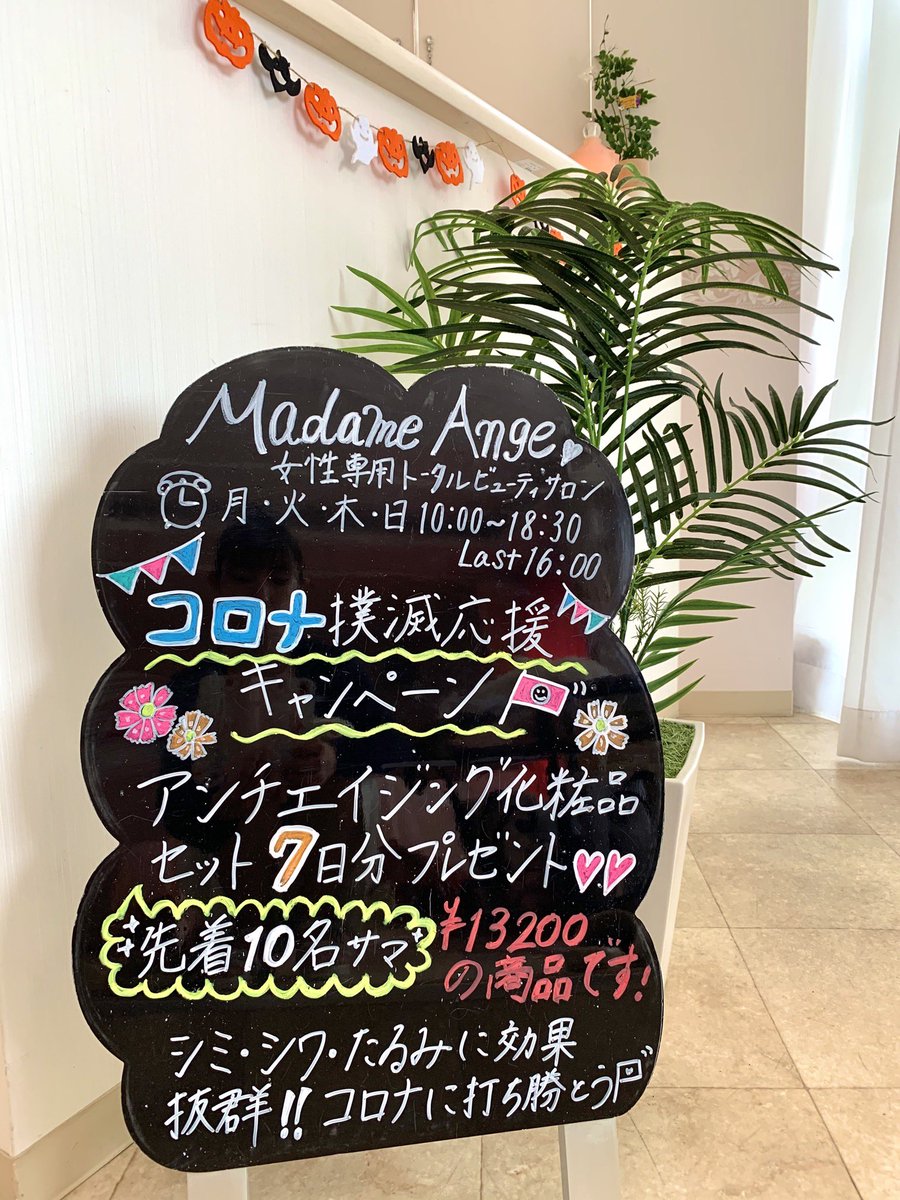 Madame Ange
女性専用トータルビューティサロン
月・火・木・日 10:00~18:30
Last 16:00
コロナ撲滅応援
キャンペーン
アンチエイジング化粧品
セット7日分プレゼント
先着10名サマ
¥13200
の商品です!
シミ・シワ・たるみに効果
抜群!! コロナに打ち勝とう